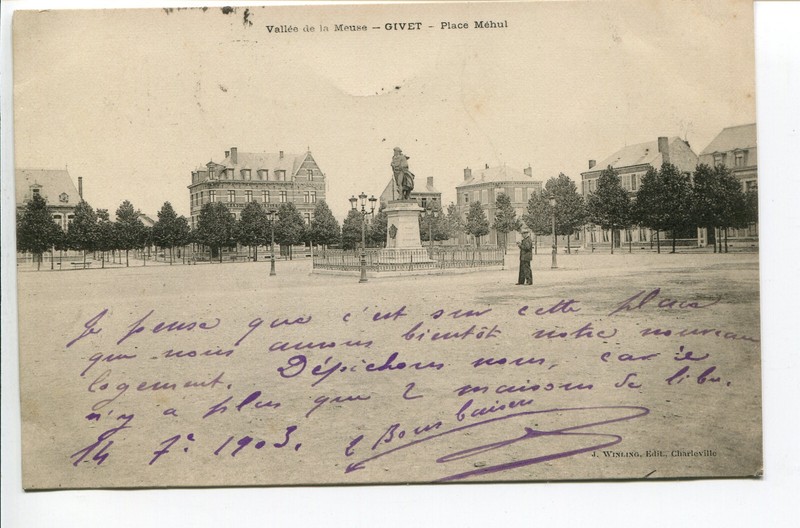 Vallée de la Meuse – GIVET – Place Méhul
Je pense que c'est sur cette place
que nous aurons bientôt notre nouveau
logement. Dépichons nous, car il
n'y a plus que 2 maisons de libr.
14 7re 1903. 2 Bons baisers
J. WINLING, Edit., Charleville